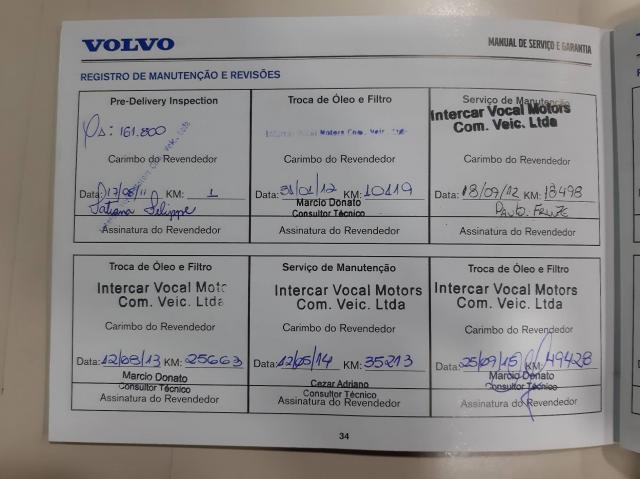 VOLVO
MANUAL DE SERVIÇO E GARANTIA
REGISTRO DE MANUTENÇÃO E REVISÕES
Pre-Delivery Inspection
161.800
Carimbo do Revendedor
Data: 17/08/11 KM: 1
Tatiana Felippe
Assinatura do Revendedor
Troca de Óleo e Filtro
Intercar Vocal Motors Com. Veic. Ltda
Carimbo do Revendedor
Data: 31/01/12 KM: 10119
Marcio Donato
Consultor Técnico
Assinatura do Revendedor
Serviço de Manutenção
Intercar Vocal Motors
Com. Veic. Ltda
Carimbo do Revendedor
Data: 18/09/12 KM: 18498
Assinatura do Revendedor
Troca de Óleo e Filtro
Intercar Vocal Motors
Com. Veic. Ltda
Carimbo do Revendedor
Data: 12/08/13 KM: 25663
Marcio Donato
Consultor Técnico
Assinatura do Revendedor
Serviço de Manutenção
Intercar Vocal Motors
Com. Veic. Ltda
Carimbo do Revendedor
Data: 12/05/14 KM: 35213
Cezar Adriano
Consultor Técnico
Assinatura do Revendedor
Troca de Óleo e Filtro
Intercar Vocal Motors
Com. Veic. Ltda
Carimbo do Revendedor
Data: 25/09/15 KM: 49428
Marcio Donato
Consultor Técnico
Assinatura do Revendedor
34